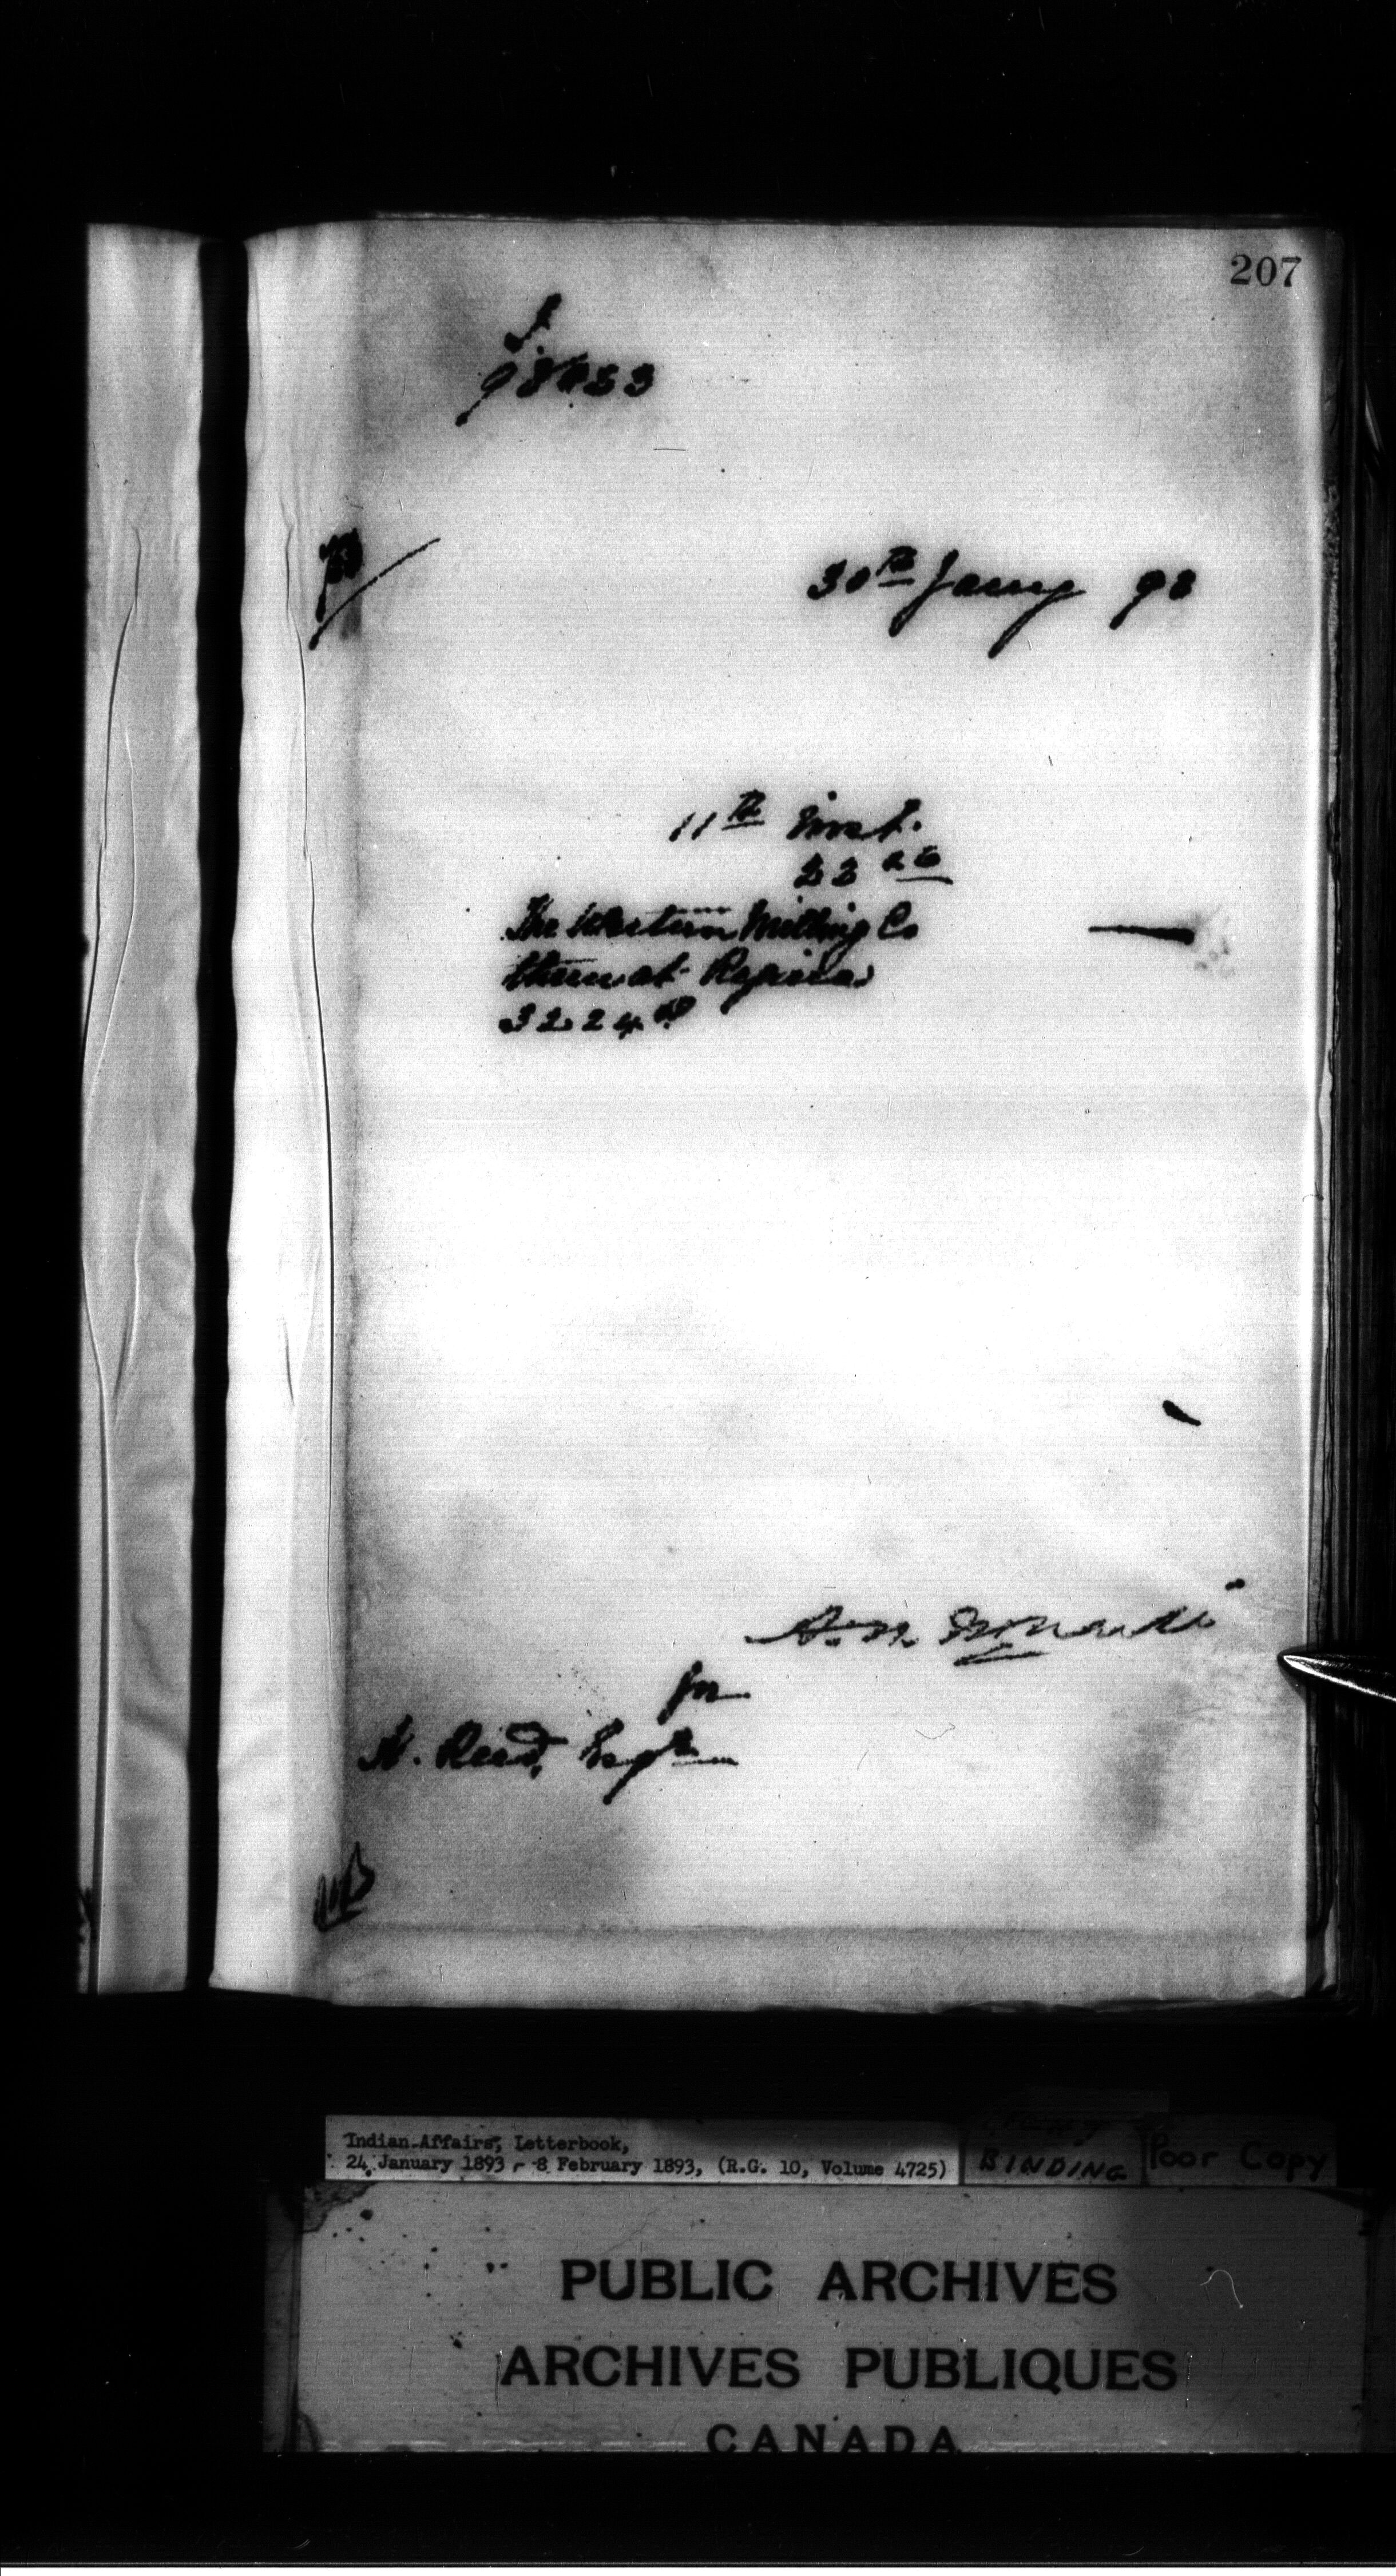 207
30th Jany 93
11th inst.
22
The Western Milling Co
them at Regina
3224.00
for
H. Reed, Esqre
Indian Affairs, Letterbook,
24 January 1893 - 8 February 1893, (R.G. 10, Volume 4725)
BINDING
Poor Copy
PUBLIC ARCHIVES
ARCHIVES PUBLIQUES
CANADA